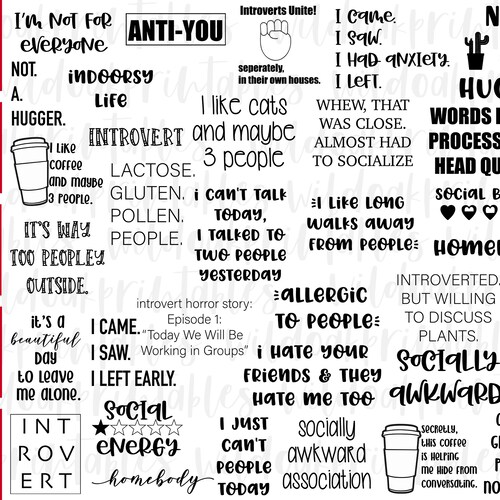 I'm not for
everyone
ANTI-YOU
Introverts Unite!
seperately,
in their own houses.
I came.
I saw.
I had anxiety.
I left.
NOT.
A.
HUGGER.
indoorsy
life
I like cats
and maybe
3 people
WHEW, THAT
WAS CLOSE.
ALMOST HAD
TO SOCIALIZE
WORDS
PROCESS
HEAD
I like
coffee
and maybe
3 people.
INTROVERT
LACTOSE.
GLUTEN.
POLLEN.
PEOPLE.
i can't talk
today,
I talked to
two people
yesterday
I like long
walks away
from people
social
IT'S WAY
TOO PEOPLEY
OUTSIDE.
introvert horror story:
Episode 1:
"Today We Will Be
Working in Groups"
allergic
to people
INTROVERTED.
BUT WILLING
TO DISCUSS
PLANTS.
it's a
beautiful
day
to leave
me alone.
I CAME.
I SAW.
I LEFT EARLY.
i hate your
friends & they
hate me too
Socially
awkward
INT
ROV
ERT
social
energy
homebody
I just
can't
people
today
socially
awkward
association
secretly,
this coffee
is helping
me hide from
conversating.
wildoakprintables